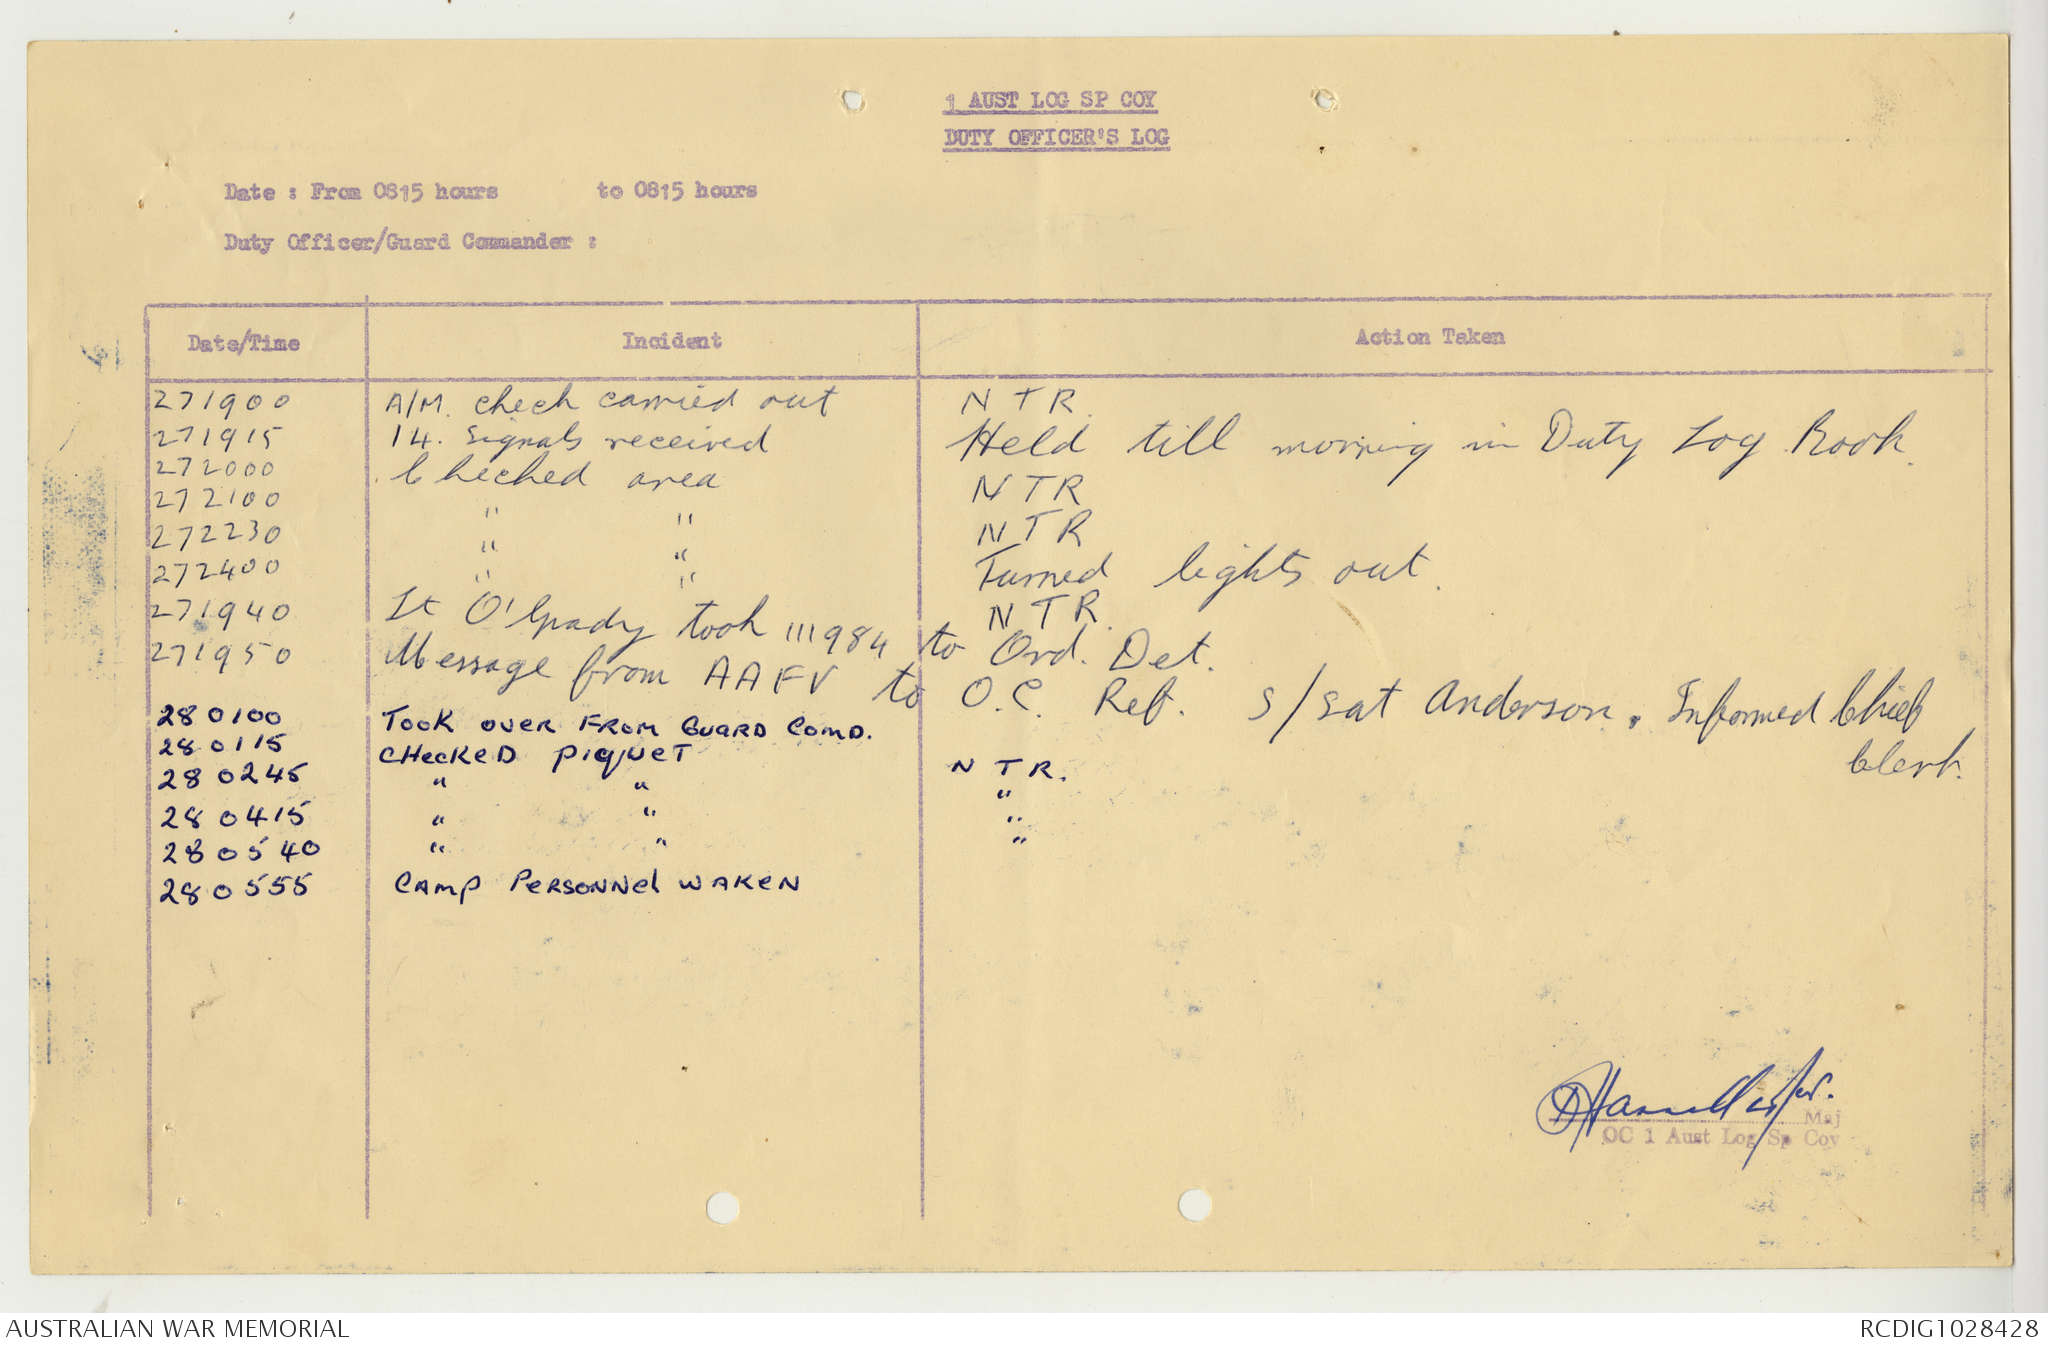 1 AUST LOG SP COY
DUTY OFFICER'S LOG
Date : From 0815 hours to 0815 hours
Duty Officer/Guard Commander :
Date/Time Incident Action Taken
271900 A/M. check carried out NTR.
271915 14. Signals received Held till morning in Duty Log Book.
272000 Checked area NTR
272100 " " NTR
272230 " " Turned lights out.
272400 " " NTR.
271940 Lt O'Grady took 111984 to Ord. Det.
271950 Message from AAFV to O.C. Ref. S/Sgt Anderson. Informed Chief
Clerk.
280100 TOOK OVER FROM GUARD COMD.
280115 CHECKED PIQUET NTR.
280245 " " "
280415 " " "
280540 " " "
280555 CAMP PERSONNEL WAKEN
Maj
OC 1 Aust Log Sp Coy
AUSTRALIAN WAR MEMORIAL RCDIG1028428